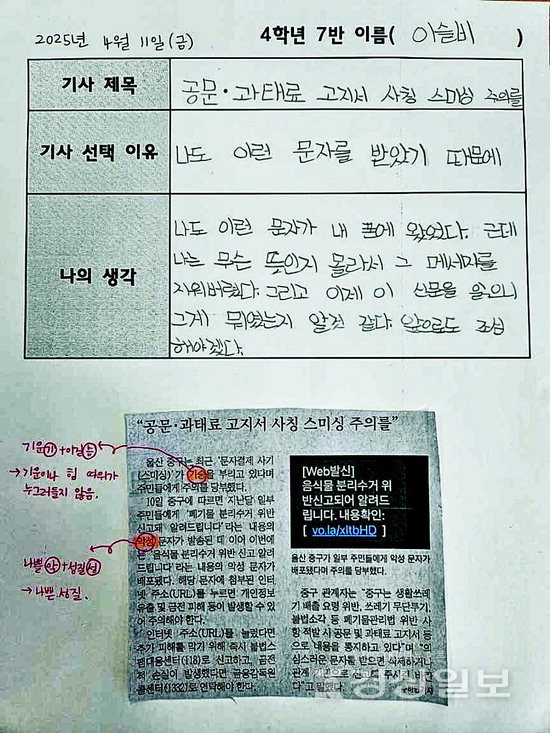 2025년 4월 11일(금)
4학년 7반 이름( 이슬비 )
기사 제목
공문·과태료 고지서 사칭 스미싱 주의를
기사 선택 이유
나도 이런 문자를 받았기 때문에
나의 생각
나도 이런 문자가 내 폰에 왔었다. 근데
나는 무슨 뜻인지 몰라서 그 메세지를
지워버렸다. 그리고 이제 이 신문을 읽으니
그게 뭐였는지 알것 같다. 앞으로도 조심
해야겠다.
"공문·과태료 고지서 사칭 스미싱 주의를"
기운 기 + 아닐
→ 기운이나 힘 따위가
누그러들지 않음.
나쁠 악 + 성질 성
→ 나쁜 성질.
울산 중구는 최근 '문자결제 사기
(스미싱)'가 기승을 부리고 있다며
주민들에게 주의를 당부했다.
10일 중구에 따르면 지난달 일부
주민들에게 '폐기물 분리수거 위반
신고돼 알려드립니다'라는 내용의
악성 문자가 발송된 데 이어 이번에
는 '음식물 분리수거 위반 신고 알려
드립니다'라는 내용의 악성 문자가
배포됐다. 해당 문자에 첨부된 인터
넷 주소(URL)를 누르면 개인정보
유출 및 금전 피해 등이 발생할 수 있
어 주의해야 한다.
인터넷 주소(URL)를 눌렀다면
추가 피해를 막기 위해 즉시 불법스
팸대응센터(118)로 신고하고, 금전
적 손실이 발생했다면 금융감독원
콜센터(1332)로 연락해야 한다.
[Web발신]
음식물 분리수거 위
반신고되어 알려드
립니다. 내용확인:
[ vo.la/xltbHD ]
울산 중구가 일부 주민들에게 악성 문자가
배포됐다며 주의를 당부했다.
중구 관계자는 "중구는 생활쓰레
기 배출 요령 위반, 쓰레기 무단투기,
불법소각 등 폐기물관리법 위반 사
항 적발 시 공문 및 과태료 고지서 등
으로 내용을 통지하고 있다"며 "의
심스러운 문자를 받으면 삭제하거나
관계 기관으로 신고해 주시길 바란
다"고 말했다.
경상일보